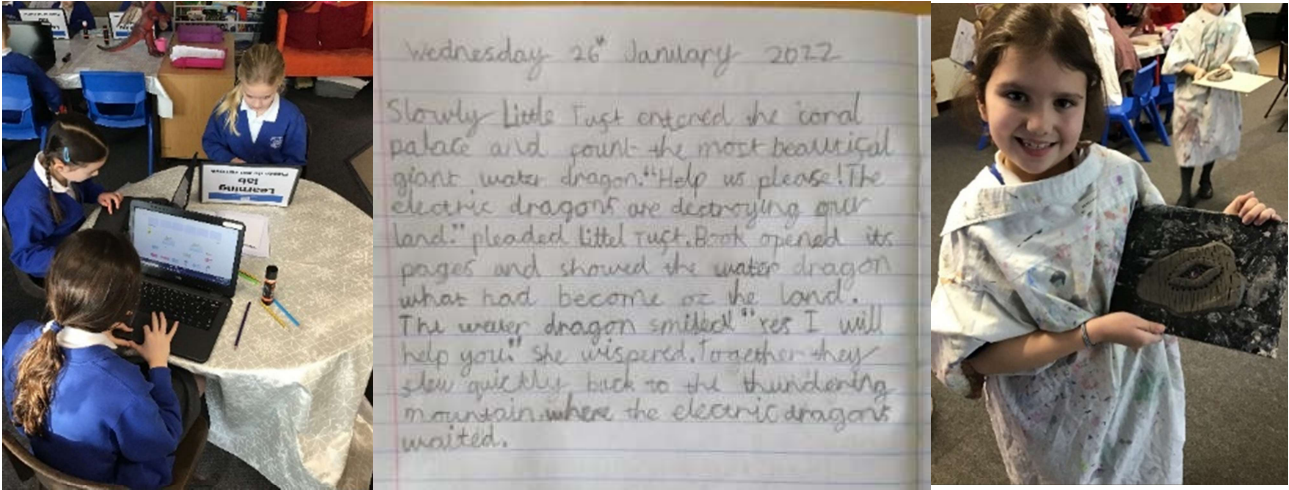 Learning
lab
Wednesday 26th January 2022
Slowly Little Tuft entered the coral
palace and fount the most beautifal
giant water dragon. "Help us please! The
electric dragons are destroying our
land." pleaded Littel Tuft. Book opened its
pages and showed the water dragon
what had become of the land.
The water dragon smiled "Yes I will
help you." she wispered. Together they
flew quickly back to the thundering
mountain where the electric dragons
waited.